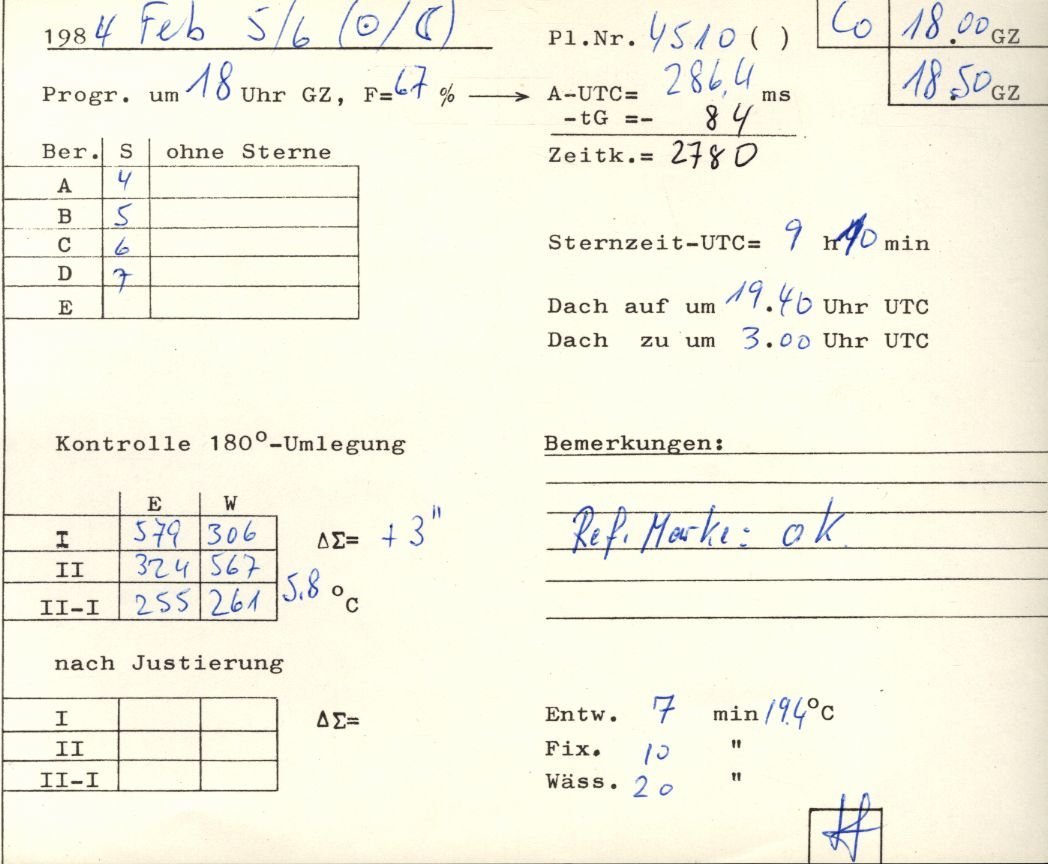 1984 Feb 5/6 (☉/☾)
Pl.Nr. 4510 ( )
Co 18.00 GZ
18.50 GZ
Progr. um 18 Uhr GZ, F=67 % → A-UTC= 286,4 ms
-tG =- 84
Zeitk.= 2780
Ber. S ohne Sterne
A 4
B 5
C 6
D 7
E
Sternzeit-UTC= 9 h 10 min
Dach auf um 19.40 Uhr UTC
Dach zu um 3.00 Uhr UTC
Kontrolle 180°-Umlegung
E W
I 579 306 ΔΣ= +3"
II 324 567
II-I 255 261 5.8 °C
Bemerkungen:
Ref. Marke: ok
nach Justierung
I ΔΣ=
II
II-I
Entw. 7 min 19.4°C
Fix. 10 "
Wäss. 20 "